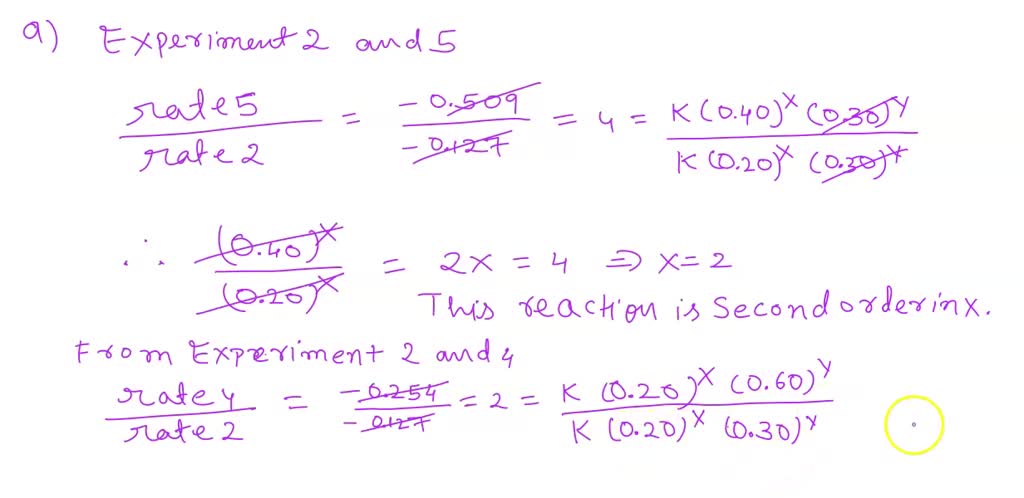 a) Experiment 2 and 5
rate5 / rate2 = -0.509 / -0.127 = 4 = K (0.40)^x (0.30)^y / K (0.20)^x (0.30)^y
∴ (0.40)^x / (0.20)^x = 2x = 4 ⇒ x=2
This reaction is second order in x.
From Experiment 2 and 4
rate4 / rate2 = -0.254 / -0.127 = 2 = K (0.20)^x (0.60)^y / K (0.20)^x (0.30)^y